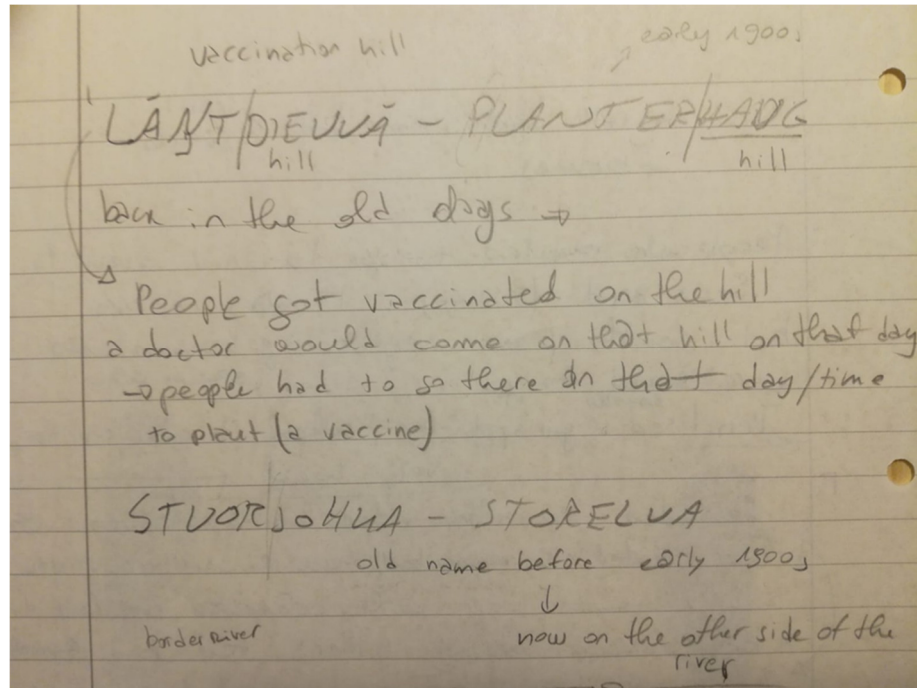 vaccination hill
early 1900s
LÁNT/DIEVVÁ - PLANTER/HAUG
hill hill
back in the old days →
People got vaccinated on the hill
a doctor would come on that hill on that day
→ people had to go there on that day/time
to plant (a vaccine)
STUORJOHKA - STORELVA
old name before early 1900s
↓
border river now on the other side of the
river